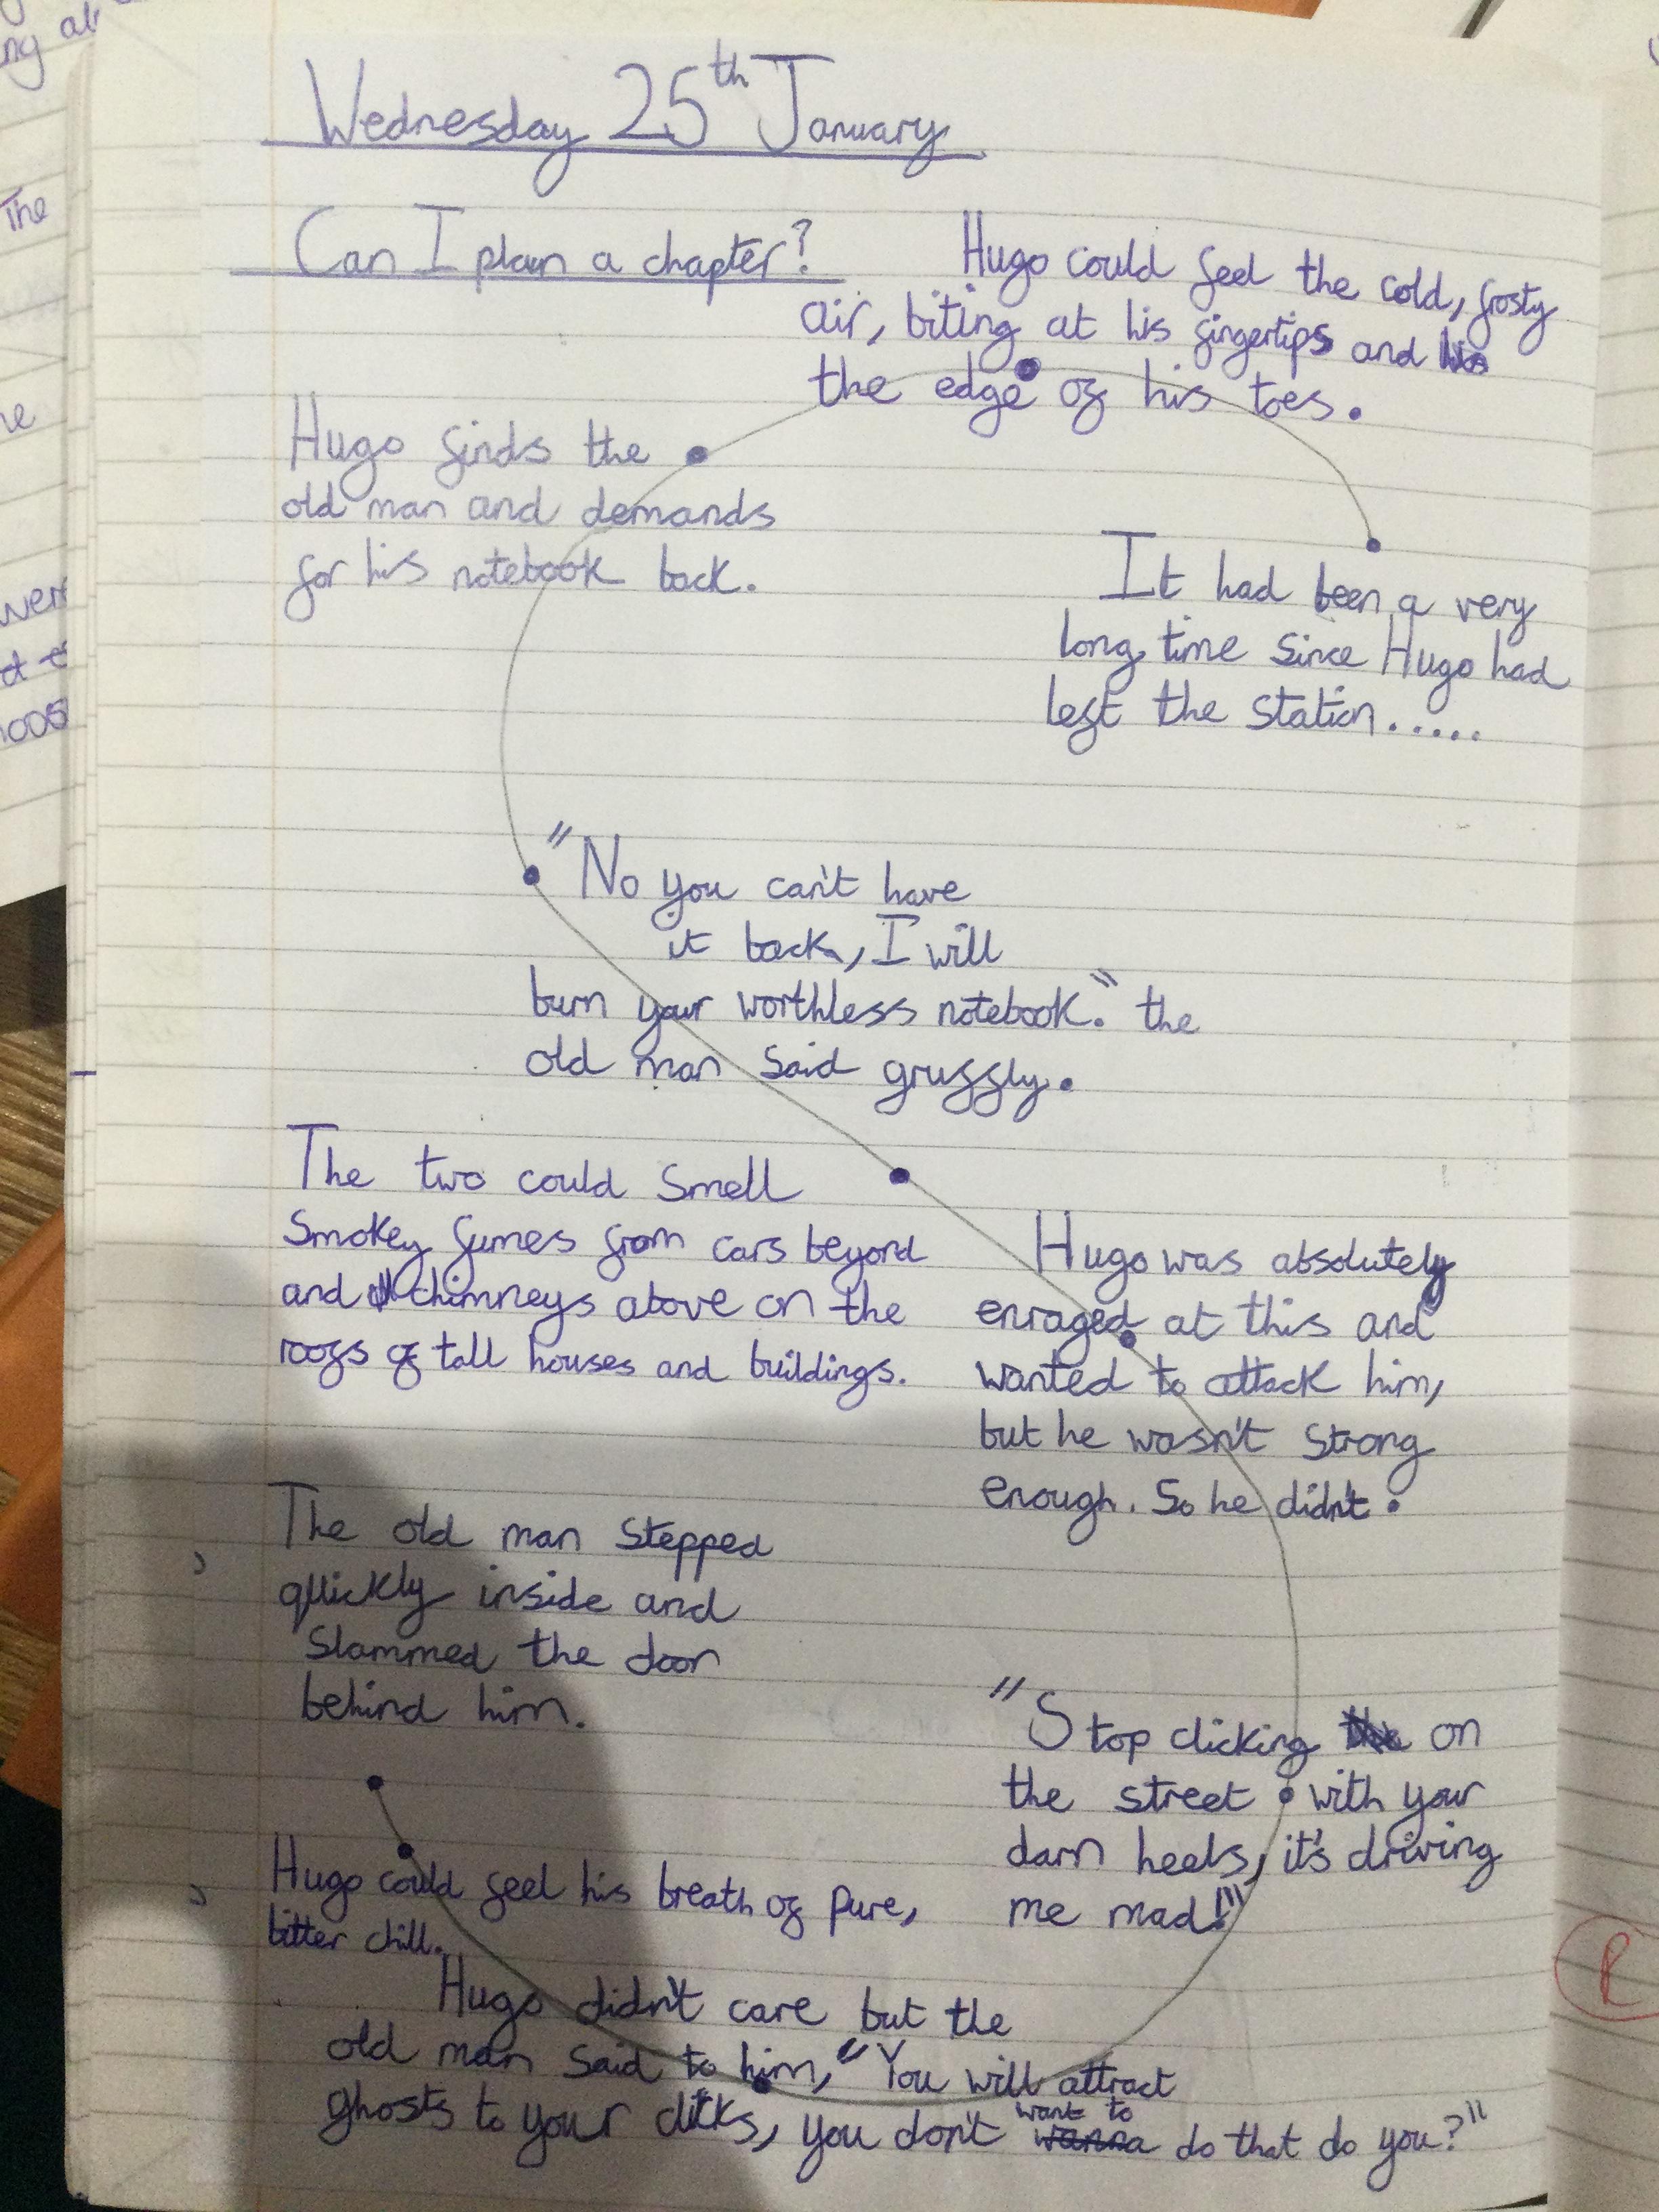 Wednesday 25th January
Can I plan a chapter?
Hugo could feel the cold, frosty
air, biting at his fingertips and his
the edge of his toes.
It had been a very
long time since Hugo had
left the station.....
Hugo finds the
old man and demands
for his notebook back.
"No you can't have
it back, I will
burn your worthless notebook." the
old man said gruffly.
The two could smell
smokey fumes from cars beyond
and chimneys above on the
roofs of tall houses and buildings.
Hugo was absolutely
enraged at this and
wanted to attack him,
but he wasn't strong
enough. So he didn't.
"Stop clicking the on
the street with your
darn heels, it's driving
me mad!"
The old man stepped
quickly inside and
slammed the door
behind him.
Hugo could feel his breath of pure,
bitter chill.
Hugo didn't care but the
old man said to him, "You will attract
want to
ghosts to your clicks, you don't wanna do that do you?"
The
were
ng
R